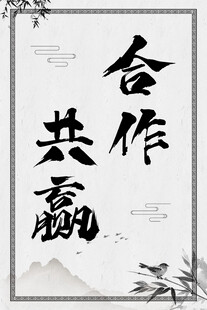 合作
共赢